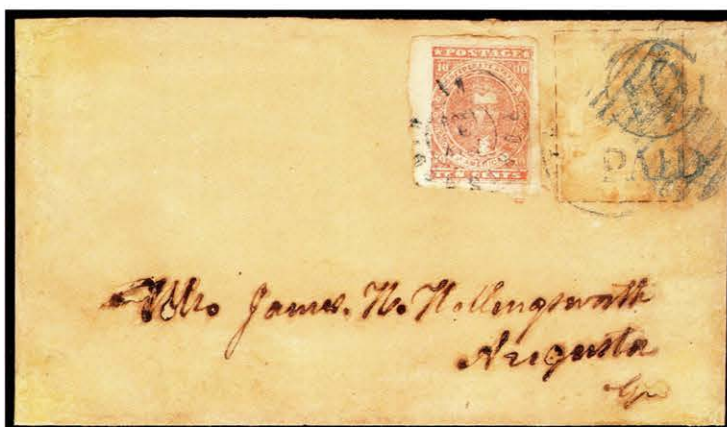 POSTAGE
10 10
TEN CENTS
PAID
Mrs James. H. Hollingsworth
Augusta
Ga